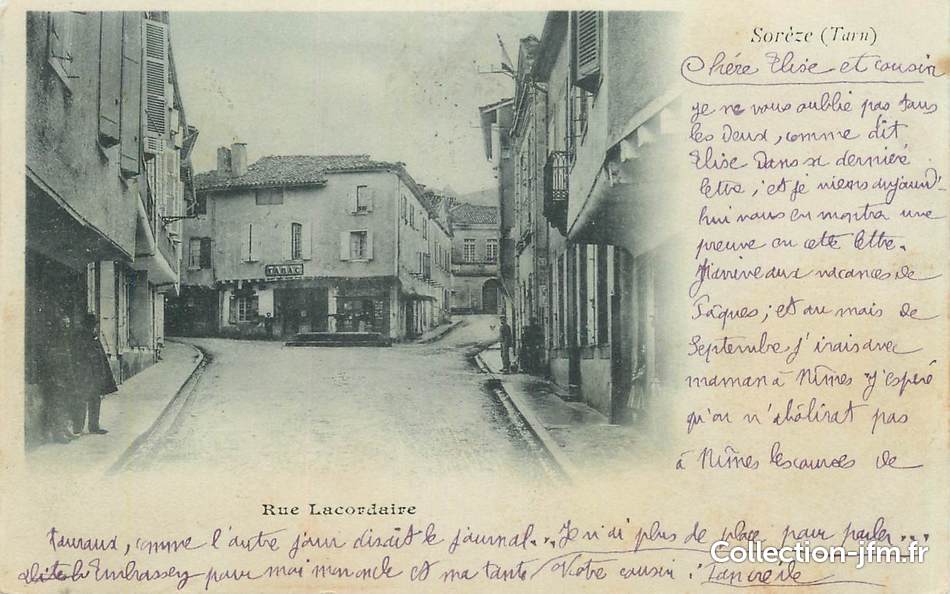 Sorèze (Tarn)
Chére Elise et cousin
je ne vous oublie pas tous
les Deux, comme dit
Elise Dans sa derniére
lettre, et je viens aujourd'
hui vous en montrer une
preuve en cette lettre.
J'arrive aux vacances de
Pâques; et au mois de
Septembre j'irais avec
maman à Nîmes J'espére
qu'on n'abôlirat pas
à Nîmes les courses de
TABAC
Rue Lacordaire
tauraux, comme l'autre jour disait le journal... Je n'ai plus de place pour parler...
Embrassez pour moi mon oncle et ma tante Votre cousin: Tancrède
Collection-jfm.fr